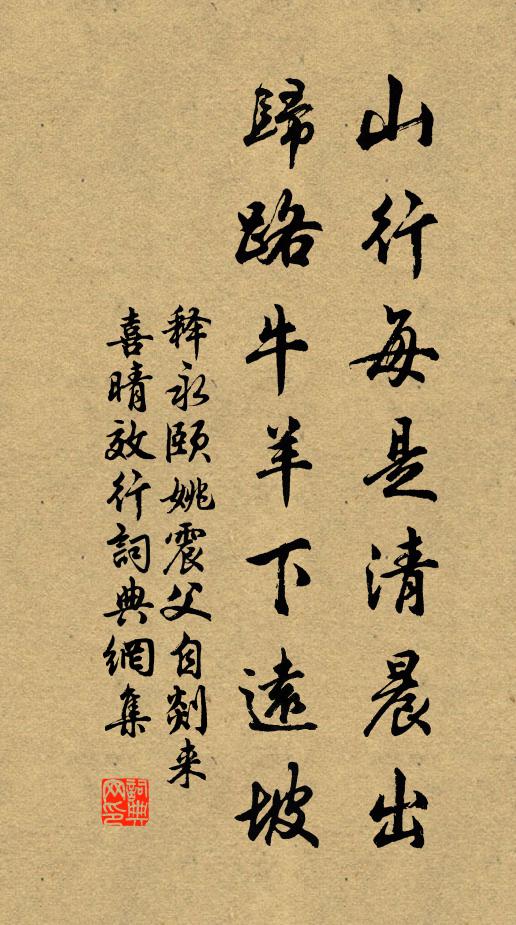 山行每是清晨出
歸路牛羊下遠坡
释永颐姚震父自剡来
喜晴效行詞典網集
詞典网印